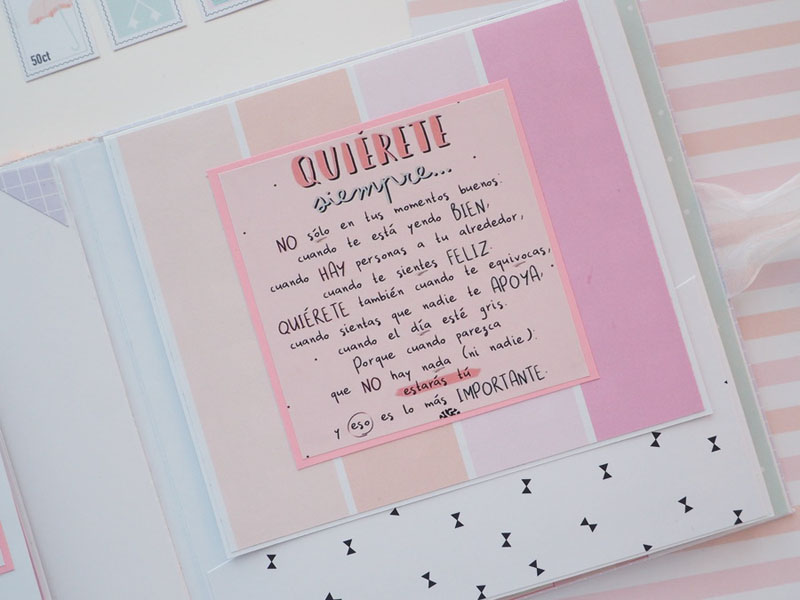 50ct
QUIÉRETE
siempre...
NO sólo en tus momentos buenos:
cuando te está yendo BIEN,
cuando HAY personas a tu alrededor,
cuando te sientes FELIZ.
QUIÉRETE también cuando te equivocas,
cuando sientas que nadie te APOYA,
cuando el día esté gris.
Porque cuando paresca
que NO hay nada (ni nadie):
estarás tú
y eso es lo más IMPORTANTE.